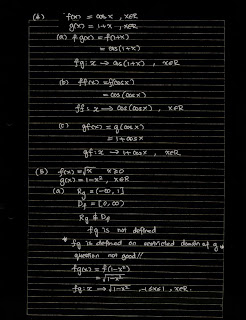 (A) f(x) = cos x , x∈R
g(x) = 1+x , x∈R
(a) f g(x) = f(1+x)
= cos(1+x)
fg : x → cos(1+x) , x∈R
(b) f f(x) = f(cos x)
= cos (cos x)
ff : x → cos(cos x) , x∈R
(c) gf(x) = g(cos x)
= 1 + cos x
gf : x → 1+ cos x , x∈R
(B) f(x) = √x x≥0
g(x) = 1-x² , x∈R
(a) Rg = (-∞, 1]
Df = [0, ∞)
Rg ⊄ Df
fg is not defined
* fg is defined on restricted domain of g
question not good!!
fg(x) = f(1-x²)
= √1-x²
fg : x → √1-x² , -1≤x≤1 , x∈R